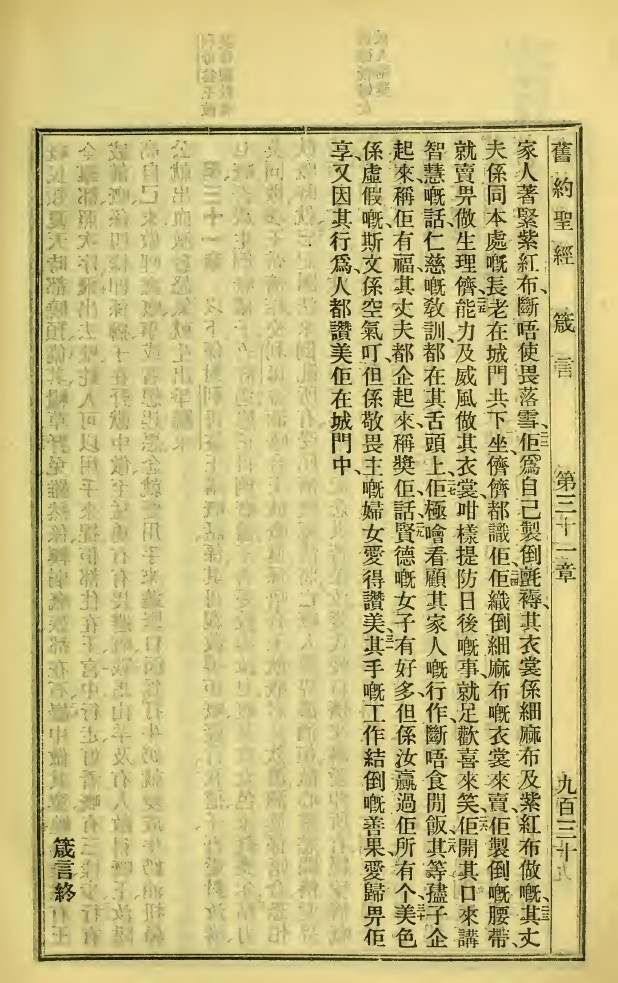 舊約聖經 箴言 第三十一章 九百三十八
家人著緊紫紅布、斷唔使畏落雪、二二佢爲自己製倒氈褥、其衣裳係細麻布及紫紅布做嘅、二三其丈
夫係同本處嘅長老在城門共下坐、儕儕都識佢、二四佢織倒細麻布嘅衣裳來賣、佢製倒嘅腰帶、
就賣畀做生理儕、二五能力及威風做其衣裳、咁樣提防日後嘅事、就足歡喜來笑、二六佢開其口來講
智慧嘅話、仁慈嘅敎訓、都在其舌頭上、二七佢極噲看顧其家人嘅行作、斷唔食閒飯、二八其等孻子企
起來稱佢有福、其丈夫都企起來稱獎佢話、二九賢德嘅女子有好多、但係汝贏過佢所有个、三十美色
係虛假嘅、斯文係空氣叮、但係敬畏主嘅婦女愛得讚美、三一其手嘅工作結倒嘅善果、愛歸畀佢
享、又因其行爲、人都讚美佢在城門中、
箴言終